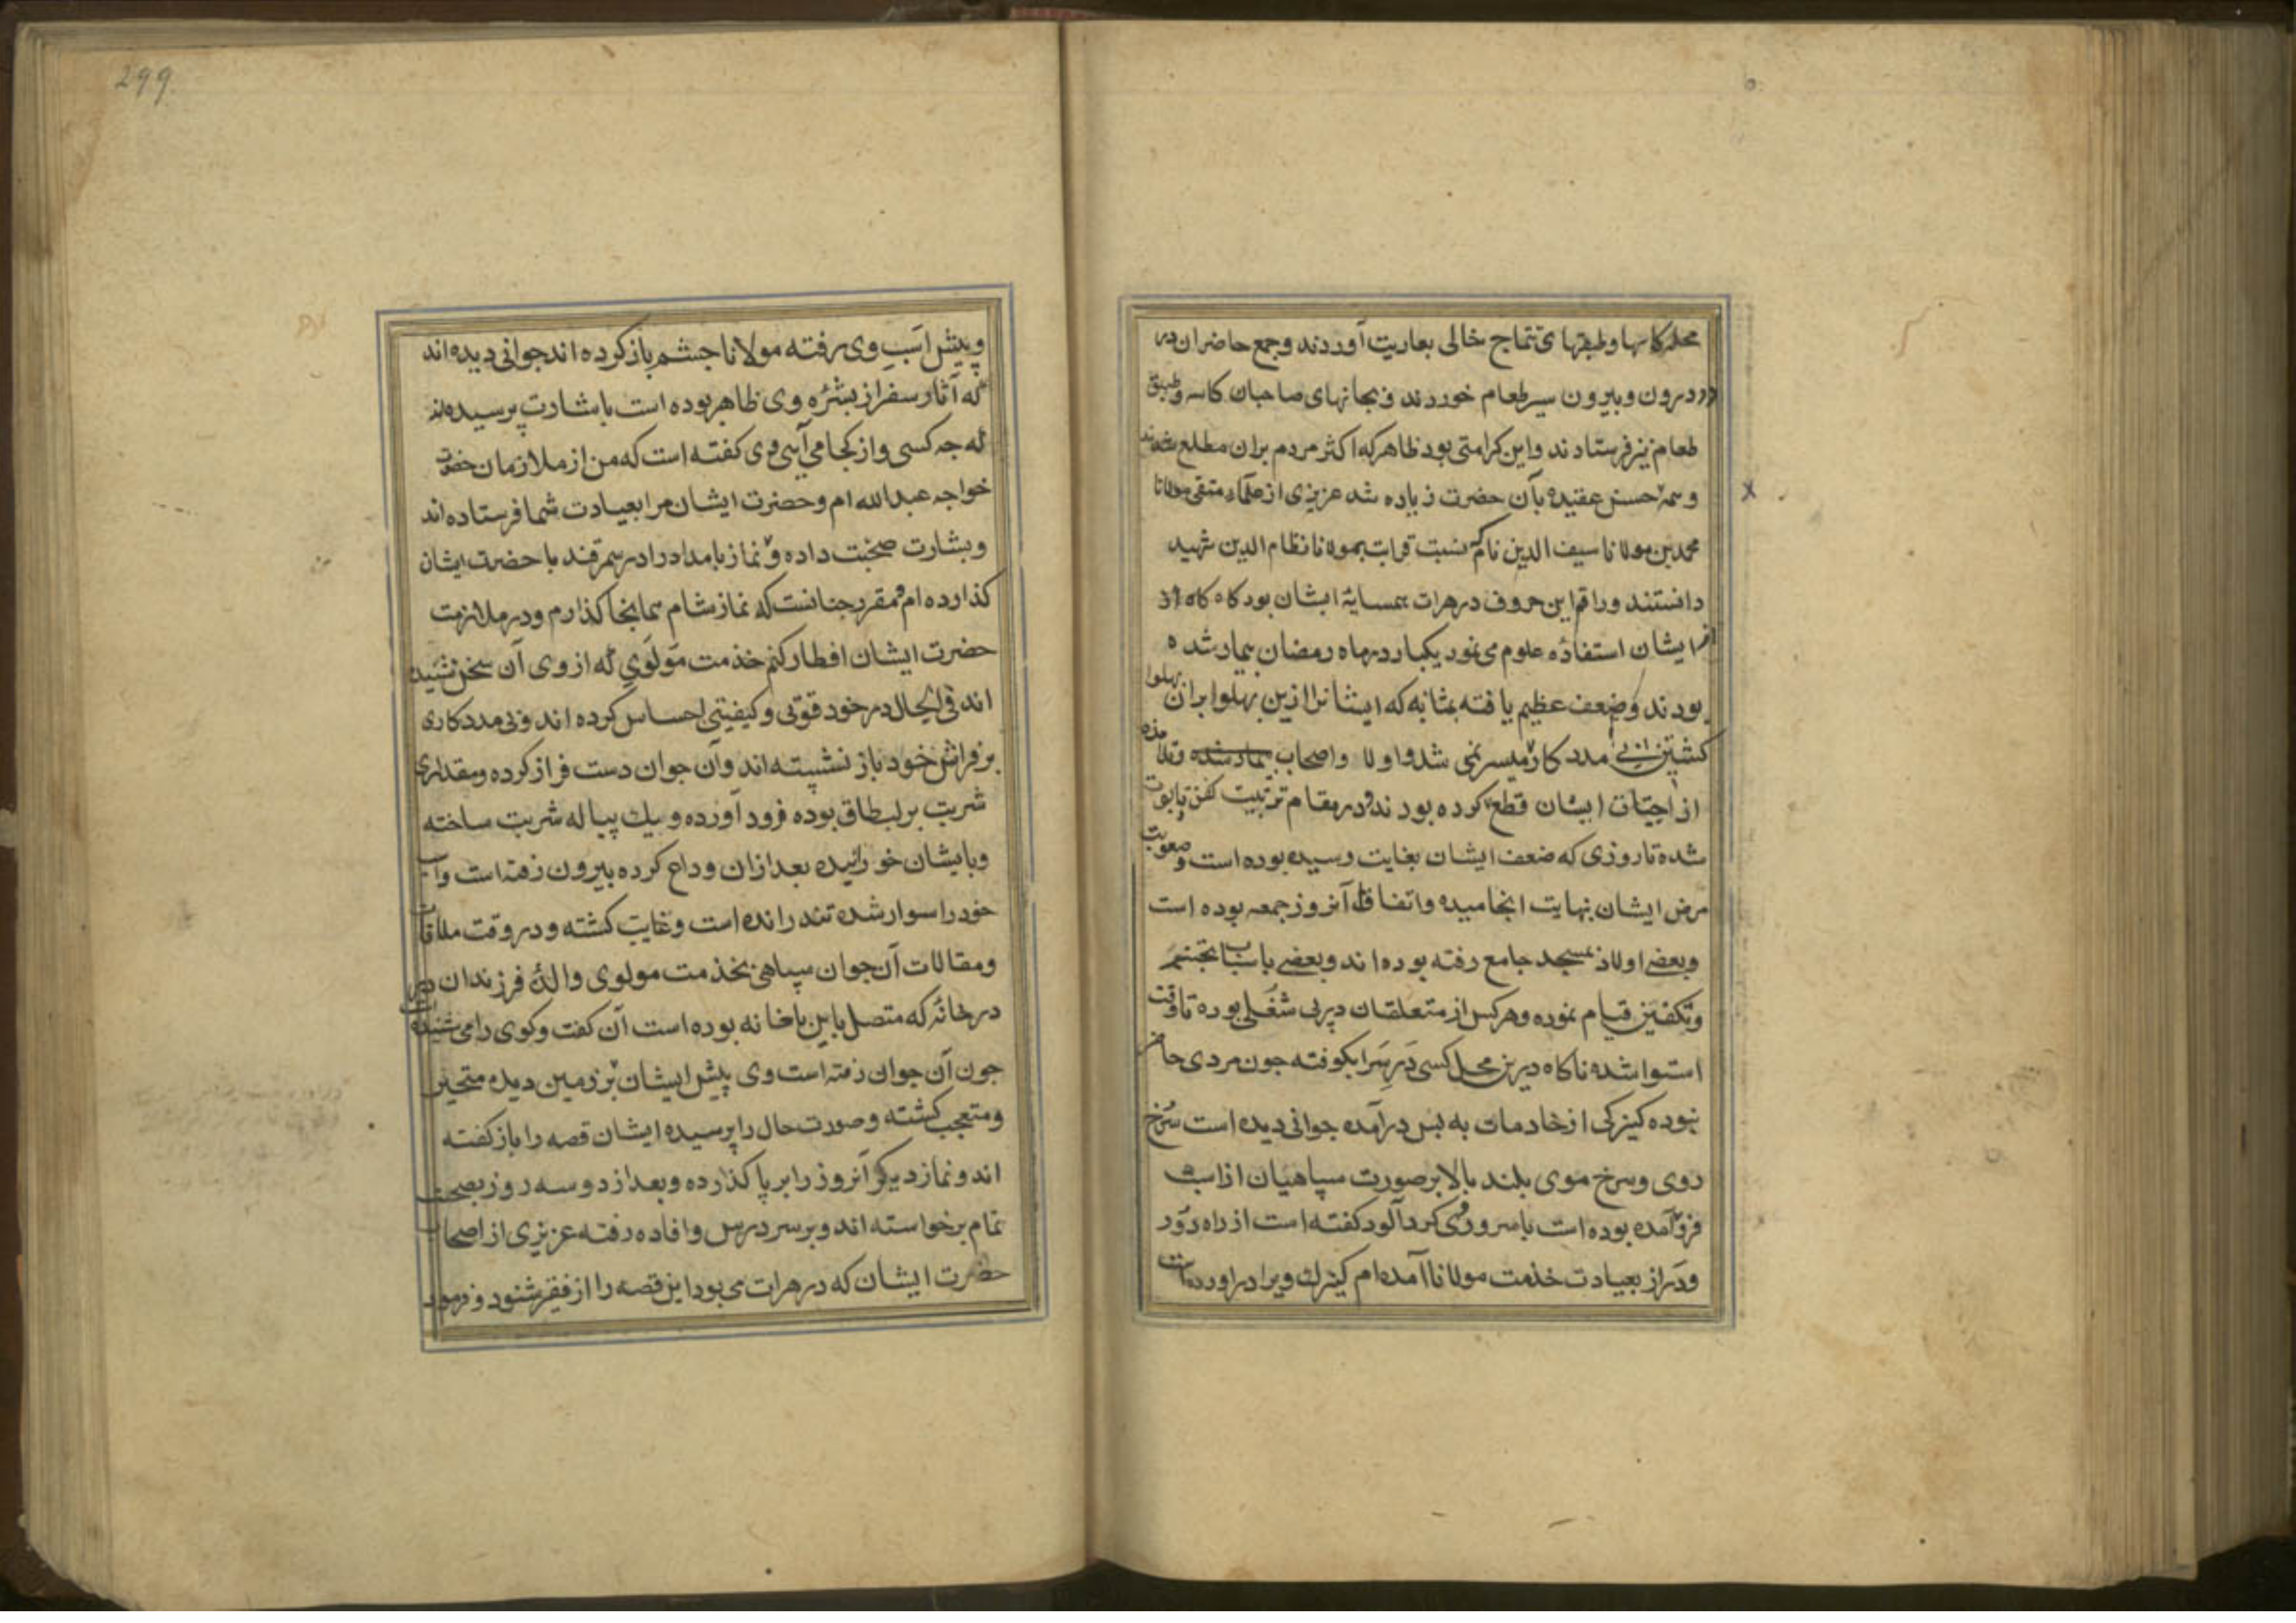 محله کاسها و طبقهای تتماج خالی بعاریت آوردند و جمع حاضران در
درون و بیرون سیر طعام خوردند و بخانهای صاحبان کاسه و طبق
طعام نیز فرستادند و این کرامتی بود ظاهر که اکثر مردم بران مطلع شدند
و همه حسن عقیده بآن حضرت زیاده شد عزیزی از علماء متقی مولانا
محمد بن مولانا سیف الدین نام که نسبت قرابت بمولانا نظام الدین شهید
داشتند و راقم این حروف در هرات همسایهٔ ایشان بود کاه کاه از
ایشان استفادهٔ علوم می نمود یکبار در ماه رمضان بیمار شده
بودند و ضعف عظیم یافته بمثابه که ایشانرا ازین پهلو ابران پهلوا
کشتن بی مدد کار میسر نمی شد و اولاد و اصحاب بیمار شده و تلامذه
از حیات ایشان قطع کرده بودند و در مقام ترتیب کفن تابوت
شده تا روزی که ضعف ایشان بغایت رسیده بوده است و صعوبت
مرض ایشان بنهایت انجامیده و اتفاقا آنروز جمعه بوده است
و بعضی اولاد بمسجد جامع رفته بوده اند و بعضی باسباب تجهیز
و تکفین قیام نموده و هر کس از متعلقان در پی شغلی بوده تا وقت
استوا شده ناکاه درین محل کسی در سرا بکوفته جون مردی حاضر
نبوده کنیزکی از خادمات به پس در آمده جوانی دیده است سرخ
روی و سرخ موی بلند بالا بر صورت سپاهیان از اسب
فرو آمده بوده است با سر و روی کرد آلود کفته است از راه دور
و دراز بعیادت خدمت مولانا آمده ام کنیزک ویرا در آورده است
299
و پیش اسب وی رفته مولانا چشم باز کرده اند جوانی دیده اند
که آثار سفر از بشرهٔ وی ظاهر بوده است باشارت پرسیده اند
که چه کسی و از کجا می آیی وی کفته است که من از ملازمان حضرت
خواجه عبدالله ام و حضرت ایشان مرا بعیادت شما فرستاده اند
و بشارت صحت داده و نماز بامداد را در سمرقند با حضرت ایشان
کذارده ام و مقرر چنانست که نماز شام همانجا کذارم و در ملازمت
حضرت ایشان افطار کنم خدمت مولوی که از وی آن سخن شنیده
اند فی الحال در خود قوتی و کیفیتی احساس کرده اند و بی مدد کاری
بر فراش خود باز نشسته اند و آن جوان دست فراز کرده و مقداری
شربت بر لب طاق بوده فرود آورده و یک پیاله شربت ساخته
و بایشان خورانیده بعد ازان وداع کرده بیرون رفته است و اسب
خود را سوار شده تند رانده است و غایب کشته و در وقت ملاقات
و مقالات آن جوان سپاهی بخدمت مولوی والدهٔ فرزندان در
در خانه که متصل باین باخانه بوده است آن کفت و کوی را می شنیده است
جون آن جوان رفته است وی پیش ایشان بر زمین دیده متحیر
و متعجب کشته و صورت حال را پرسیده ایشان قصه را باز کفته
اند و نماز دیکر آنروز را بر پا کذارده و بعد از دو سه روز بصحت
تمام برخواسته اند و بر سر درس و افاده رفته عزیزی از اصحاب
حضرت ایشان که در هرات می بود این قصه را از فقیر شنود و فرمود